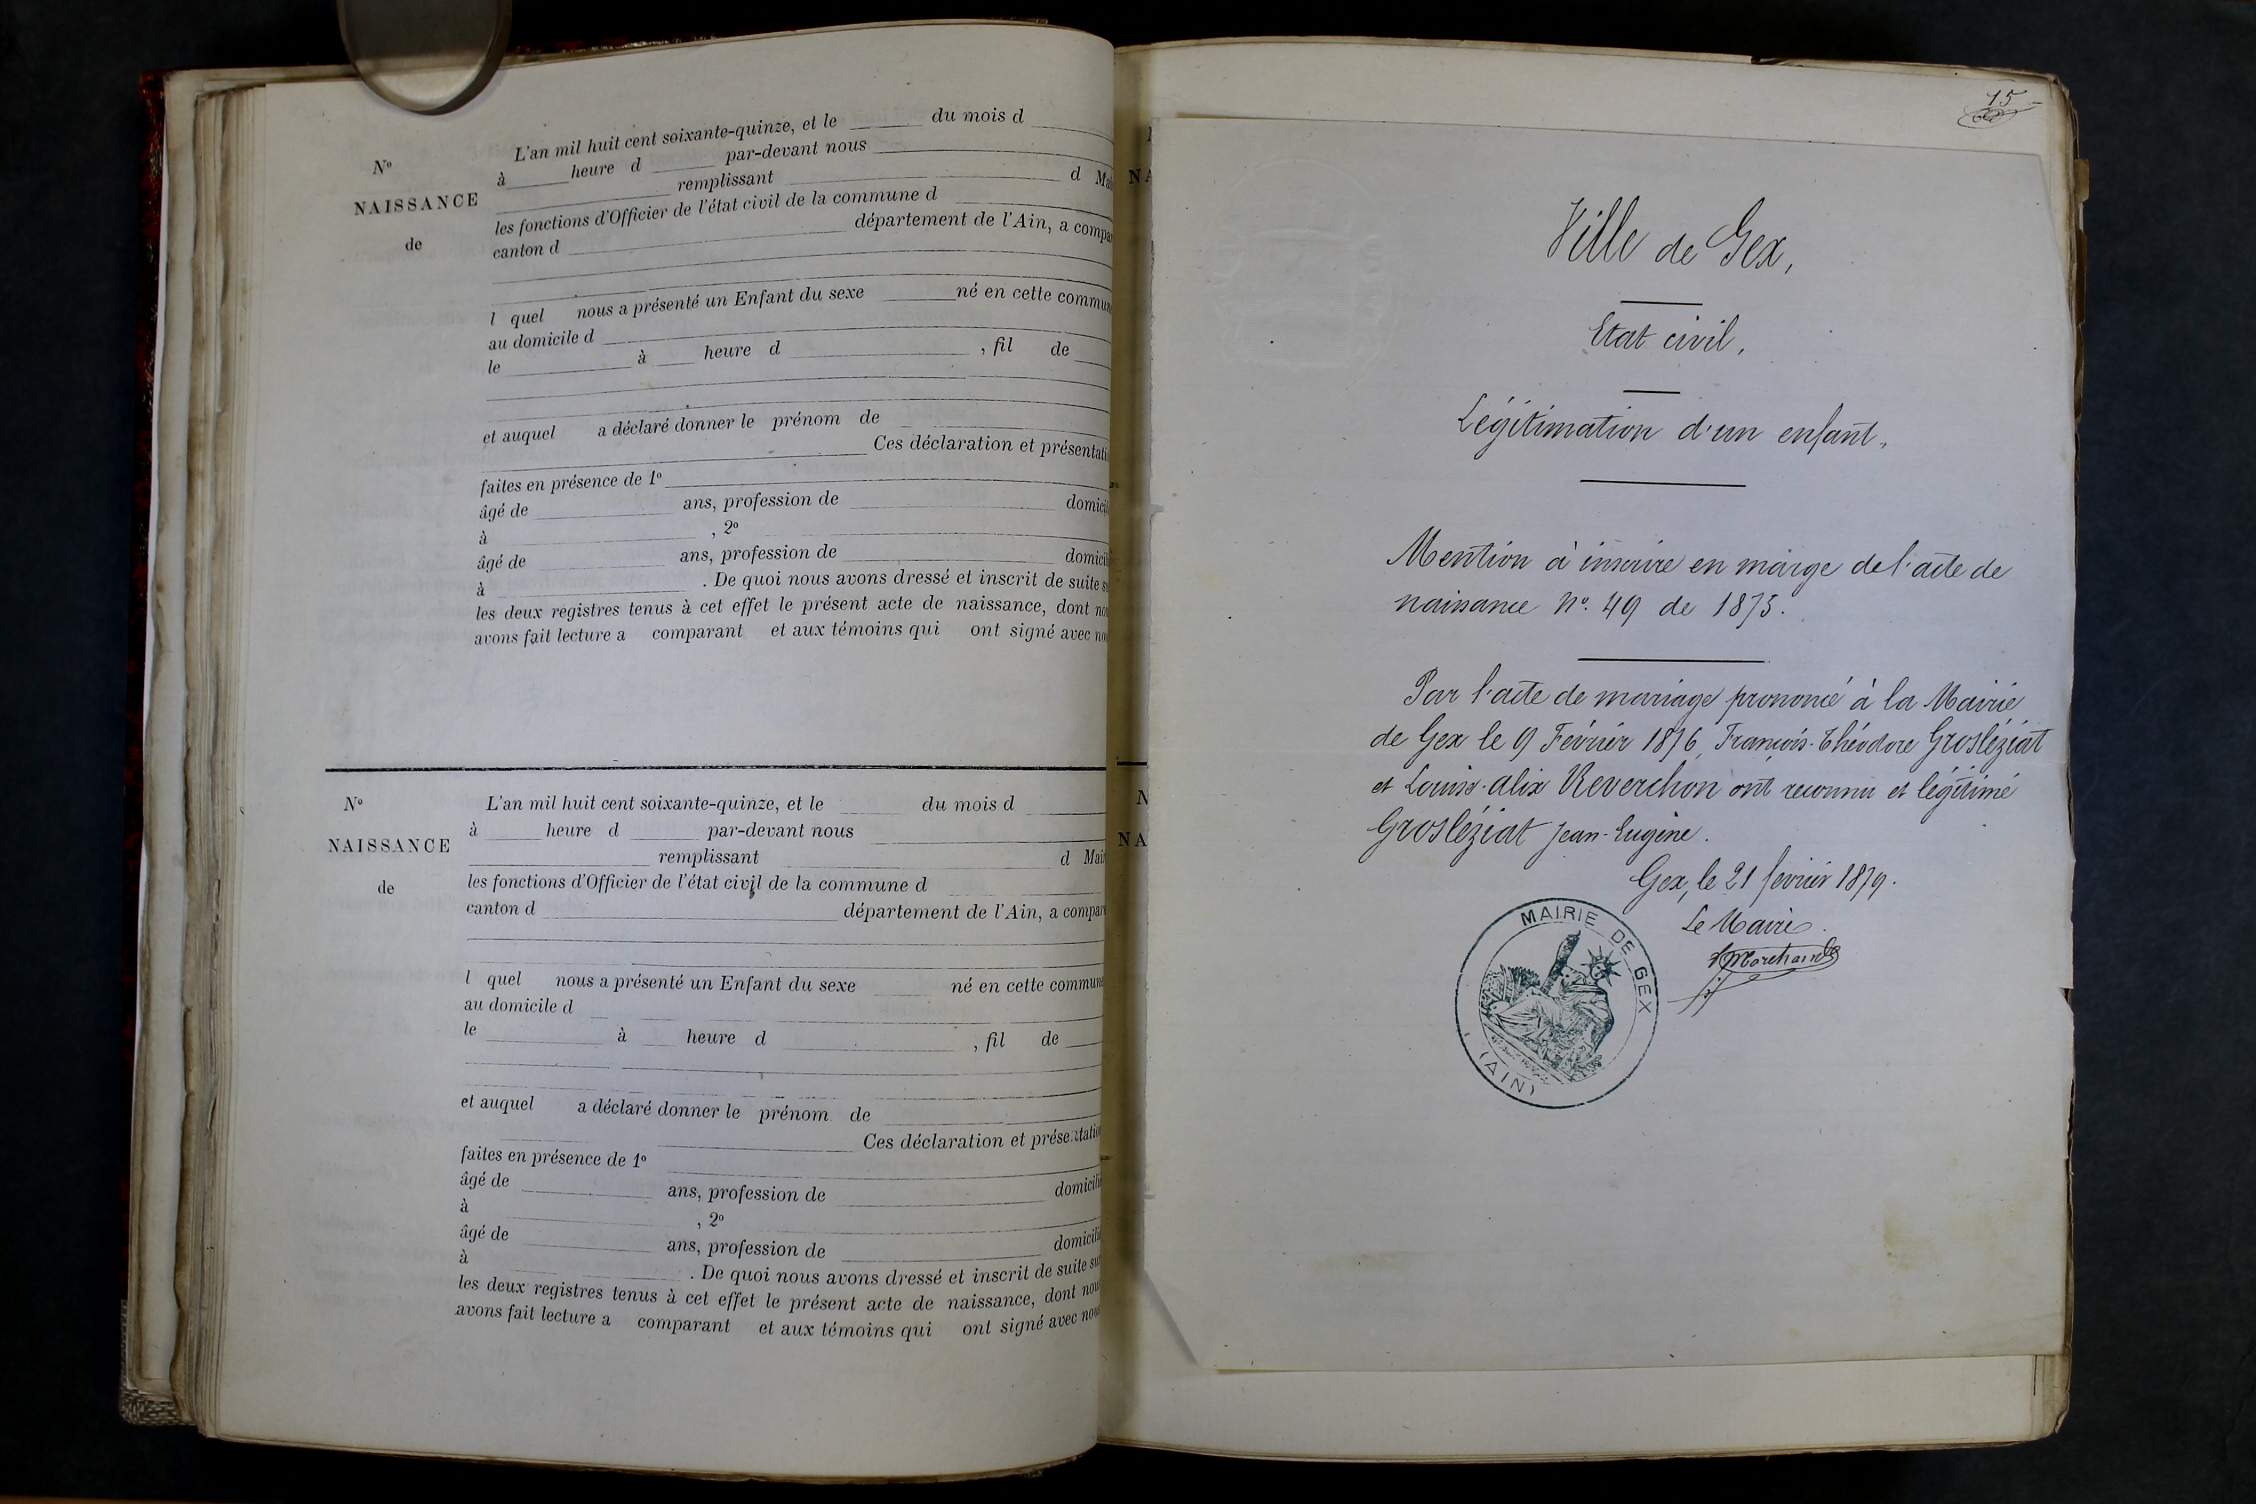 N°
NAISSANCE
de
L'an mil huit cent soixante-quinze, et le du mois d
à heure d par-devant nous
remplissant d Mai
les fonctions d'Officier de l'état civil de la commune d
canton d département de l'Ain, a compar
l quel nous a présenté un Enfant du sexe né en cette commune
au domicile d
le à heure d , fil de
et auquel a déclaré donner le prénom de
Ces déclaration et présentati
faites en présence de 1°
âgé de ans, profession de domicili
à , 2°
âgé de ans, profession de domicili
à . De quoi nous avons dressé et inscrit de suite s
les deux registres tenus à cet effet le présent acte de naissance, dont no
avons fait lecture a comparant et aux témoins qui ont signé avec no
N°
NAISSANCE
de
L'an mil huit cent soixante-quinze, et le du mois d
à heure d par-devant nous
remplissant d Mair
les fonctions d'Officier de l'état civil de la commune d
canton d département de l'Ain, a compar
l quel nous a présenté un Enfant du sexe né en cette commune
au domicile d
le à heure d , fil de
et auquel a déclaré donner le prénom de
Ces déclaration et présentatio
faites en présence de 1°
âgé de ans, profession de domicili
à , 2°
âgé de ans, profession de domicili
à . De quoi nous avons dressé et inscrit de suite su
les deux registres tenus à cet effet le présent acte de naissance, dont nou
avons fait lecture a comparant et aux témoins qui ont signé avec nou
15
NA
N
NA
Ville de Gex,
Etat civil,
Légitimation d'un enfant,
Mention à inscrire en marge de l'acte de
naissance N°. 49 de 1875.
Par l'acte de mariage prononcé à la Mairie
de Gex le 9 Février 1876, François-Théodore Grosléziat
et Louise-Alix Reverchon ont reconnu et légitimé
Grosléziat Jean-Eugène.
Gex, le 21 février 1879.
Le Maire
MAIRIE DE GEX
(AIN)